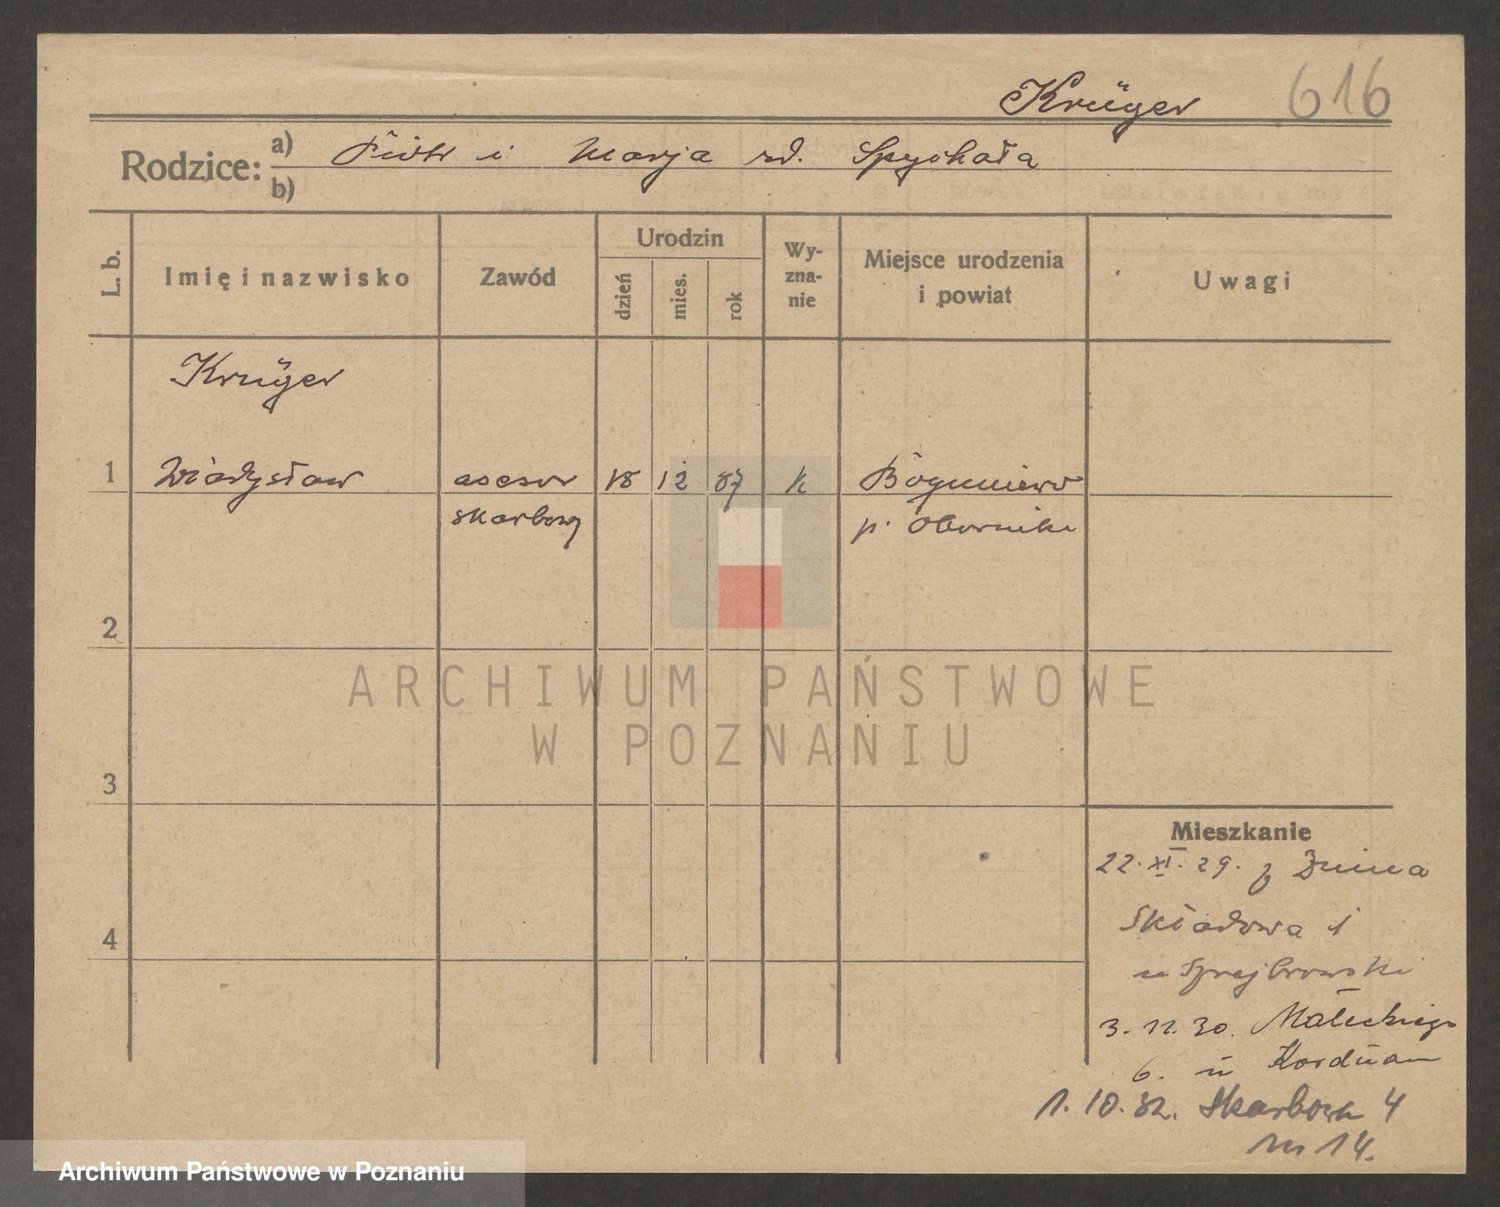 Krüger 616
Rodzice: a) Piotr i Marja zd. Spychała
b)
L. b.
Imię i nazwisko
Zawód
Urodzin
dzień
mies.
rok
Wy-
zna-
nie
Miejsce urodzenia
i powiat
Uwagi
Krüger
1 Władysław asesor 18 12 87 k Boguniewo
skarbowy p. Oborniki
2
ARCHIWUM PAŃSTWOWE
W POZNANIU
3
Mieszkanie
22. XI. 29. z Żnina
Składowa 1
4
u Sprejbrowski
3. 11. 30. Małeckiego
6. u Korduan
1. 10. 32. Skarbowa 4
m 14.
Archiwum Państwowe w Poznaniu